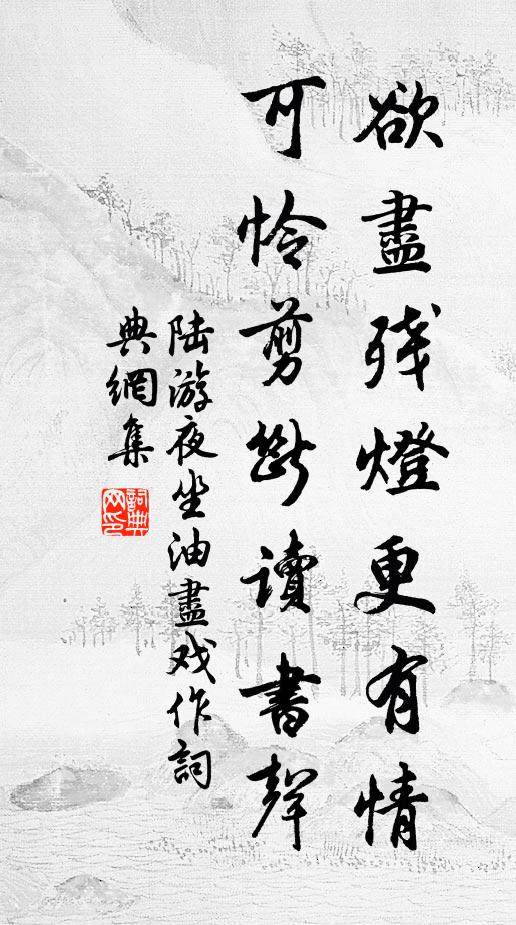 欲盡残燈更有情
可怜剪斷讀書聲
陆游夜坐油盡戏作詞
典網集
詞典网印